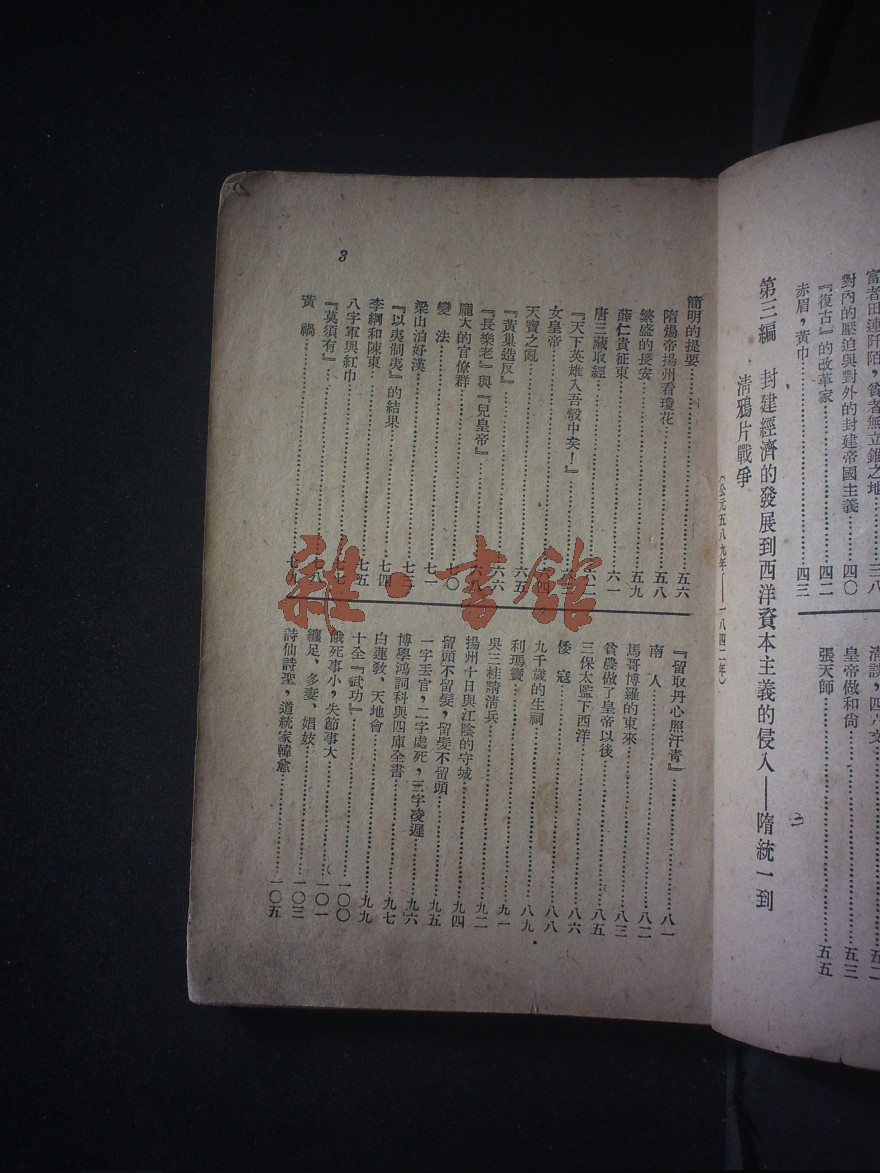 富者田連阡陌，貧者無立錐之地…………三八
對內的壓迫與對外的封建帝國主義…………四〇
『復古』的改革家…………四二
赤眉，黃巾…………四三
皇帝做和尙…………五三
張天師…………五五
第三編 封建經濟的發展到西洋資本主義的侵入——隋統一到
淸鴉片戰爭
（公元五八九年——一八四二年）
3
簡明的提要…………五六
隋煬帝揚州看瓊花…………五八
繁盛的長安…………五九
薛仁貴征東…………六一
唐三藏取經…………六二
『天下英雄入吾彀中矣！』
女皇帝…………
天寶之亂…………六五
『黃巢造反』…………六六
『長樂老』與『兒皇帝』
龐大的官僚群…………七〇
變法…………七一
梁山泊好漢…………七三
『以夷制夷』的結果…………七四
李綱和陳東…………七五
八字軍與紅巾…………七七
『莫須有』…………七八
黃禍…………
『留取丹心照汗靑』…………八一
南人…………八二
馬哥博羅的東來…………八三
貧農做了皇帝以後…………八五
三保太監下西洋…………八六
倭寇…………八八
九千歲的生祠…………八九
利瑪竇…………九一
吳三桂請淸兵…………九二
揚州十日與江陰的守城…………九四
留頭不留髮，留髮不留頭…………九五
一字丟官，二字處死，三字凌遲…………九六
博學鴻詞科與四庫全書…………九七
白蓮敎、天地會…………九九
十全『武功』…………一〇〇
餓死事小，失節事大…………一〇一
纏足、多妻、娼妓…………一〇三
詩仙詩聖，道統家韓愈…………一〇五
雜·書館